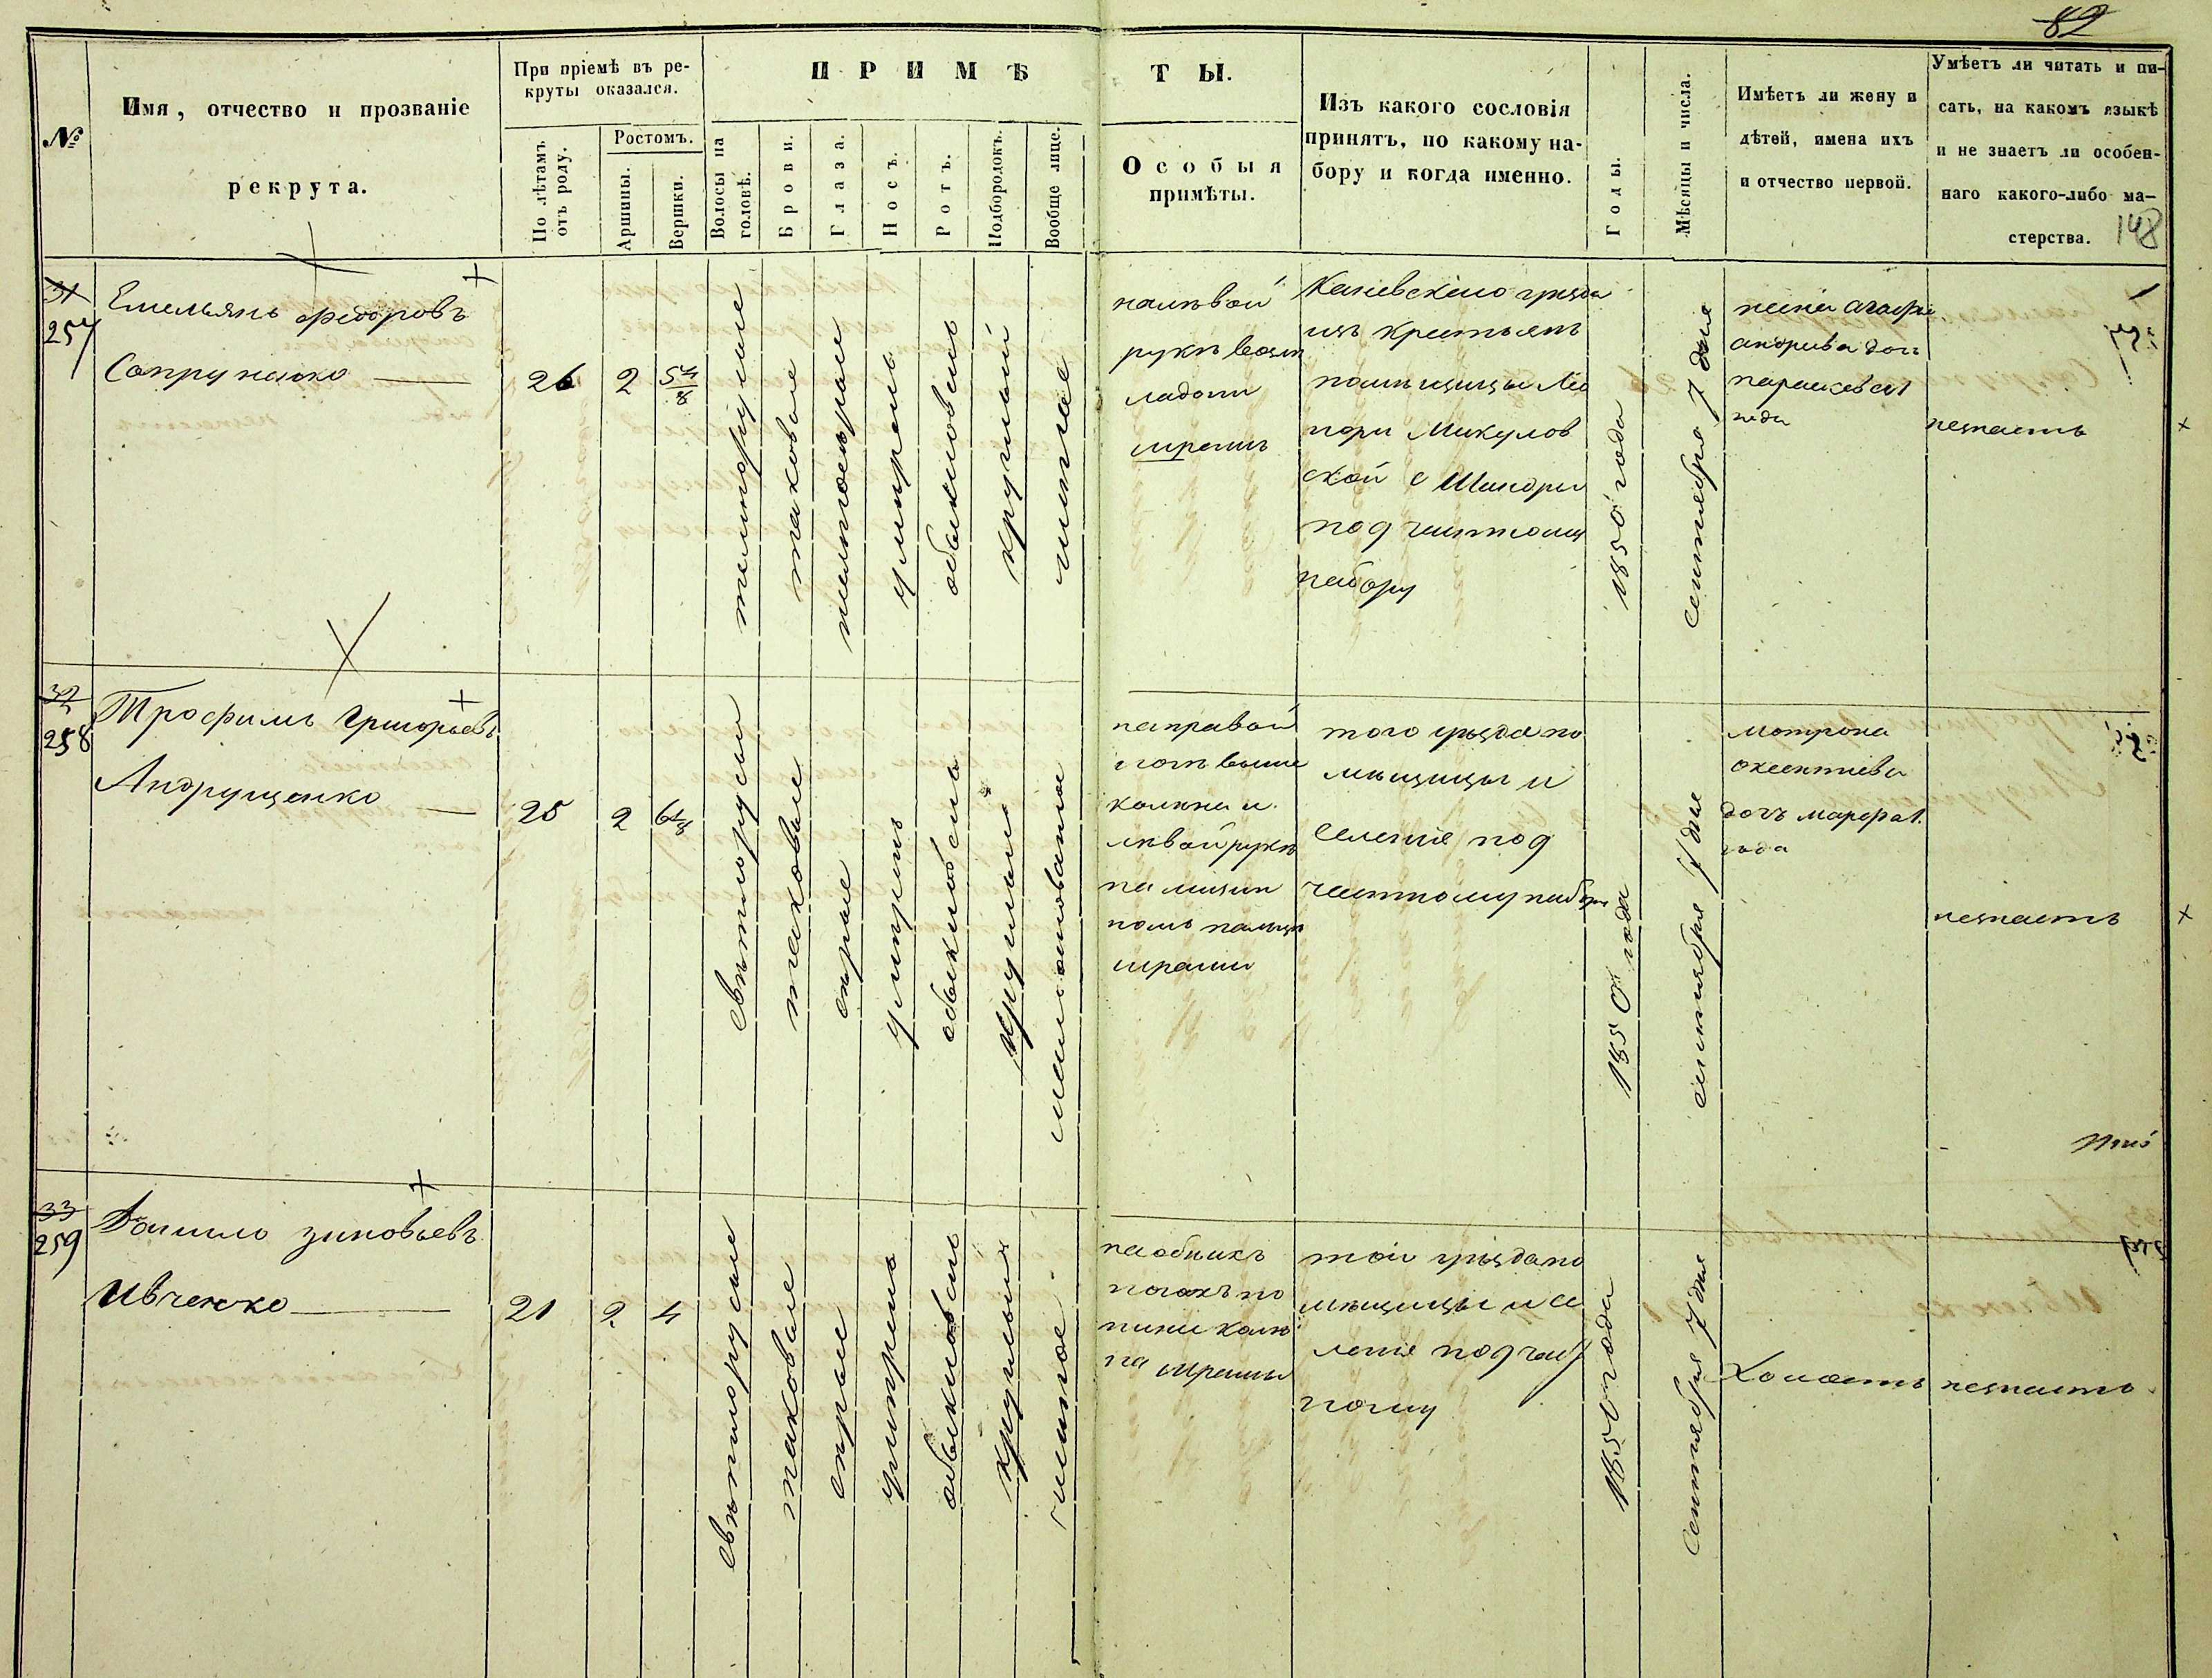 82
№
Имя, отчество и прозваніе
рекрута.
При пріемѣ въ ре-
круты оказался.
По лѣтамъ
отъ роду.
Ростомъ.
Аршины.
Вершки.
ПРИМѢТЫ.
Волосы на
головѣ.
Брови.
Глаза.
Носъ.
Ротъ.
Подбородокъ.
Вообще лице.
Особыя
примѣты.
Изъ какого сословія
принятъ, по какому на-
бору и когда именно.
Годы.
Мѣсяцы и числа.
Имѣетъ ли жену и
дѣтей, имена ихъ
и отчество первой.
Умѣетъ ли читать и пи-
сать, на какомъ языкѣ
и не знаетъ ли особен-
наго какого-либо ма-
стерства.
148
31
257
Емельянъ Федоровъ
Сопруненко
26
2
5 4/8
темнорусые
таковые
желтосѣрые
умѣренъ
обыкновенъ
круглый
чистое
на лѣвой
рукѣ возлѣ
ладони
шрамъ
Каневскаго уѣзда
изъ крестьянъ
помѣщицы
Микулов
ской с Шандры
под частному
набору
1850 года
сентября 7 дня
жена
дочь
параскева 1
года
незнаетъ
32
258
Трофимъ Григорьевъ
Андрущенко
25
2
6 1/8
свѣтлорусые
таковые
сѣрые
умѣренъ
обыкновенъ
круглый
на правой
ногѣ выше
колѣна и
лѣвой рукѣ
на мизин
номъ пальцѣ
шрамы
того уѣзда по
мѣщицы и
селенія под
частному набору
1850 года
сентября 7 дня
мотрона
оксентиева
дочь марфа 1.
года
незнаетъ
33
259
Данило зиновьевъ
Ивченко
21
2
4
свѣтлорусые
таковые
сѣрые
умѣренъ
обыкновенъ
круглый
чистое
на обѣихъ
ногахъ по
ниже колѣ
на шрамы
той уѣзда по
мѣщицы и се
ленія под част
ному
1850 года
Сентября 7 дня
Холостъ
незнаетъ